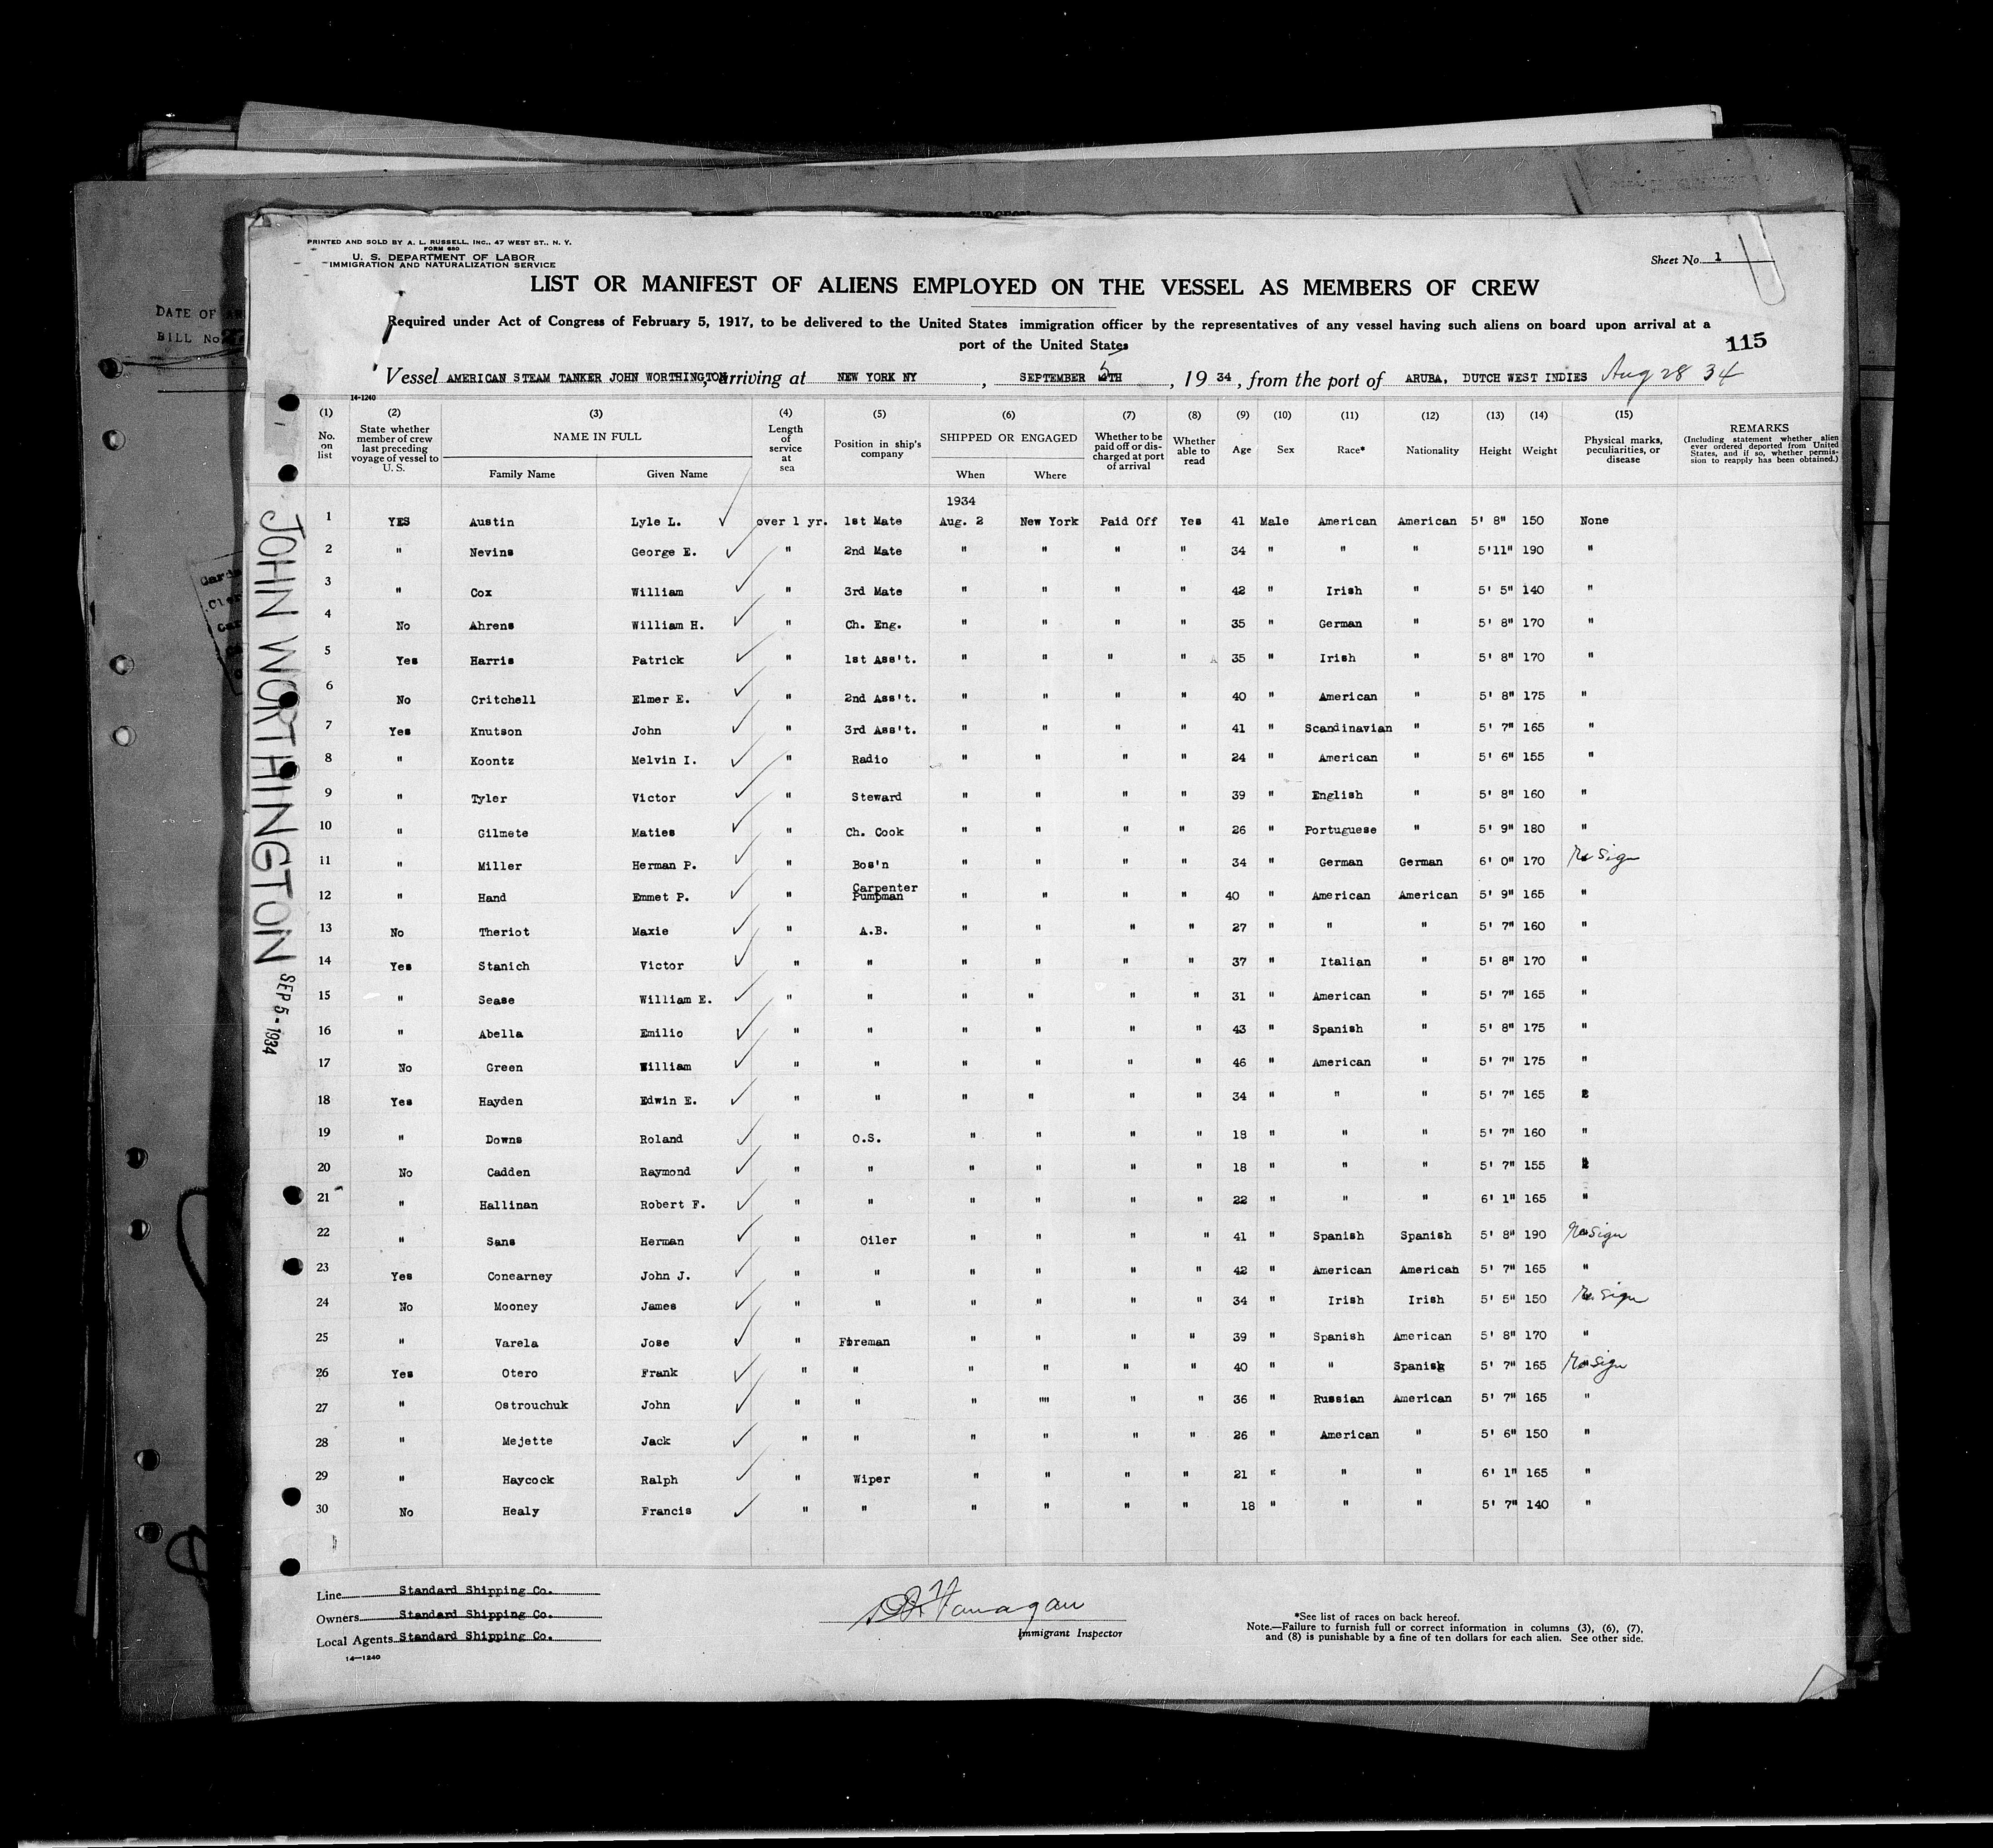 DATE OF
BILL No.
PRINTED AND SOLD BY A. L. RUSSELL, INC., 47 WEST ST., N. Y.
FORM 680
U. S. DEPARTMENT OF LABOR
IMMIGRATION AND NATURALIZATION SERVICE
Sheet No. 1
LIST OR MANIFEST OF ALIENS EMPLOYED ON THE VESSEL AS MEMBERS OF CREW
Required under Act of Congress of February 5, 1917, to be delivered to the United States immigration officer by the representatives of any vessel having such aliens on board upon arrival at a
port of the United States
115
Vessel AMERICAN STEAM TANKER JOHN WORTHINGTON, arriving at NEW YORK NY, SEPTEMBER 5TH, 1934, from the port of ARUBA, DUTCH WEST INDIES Aug 28 34
14-1240
(1) (2) (3) (4) (5) (6) (7) (8) (9) (10) (11) (12) (13) (14) (15)
No. on list
State whether member of crew last preceding voyage of vessel to U.S.
NAME IN FULL
Family Name Given Name
Length of service at sea
Position in ship's company
SHIPPED OR ENGAGED
When Where
Whether to be paid off or discharged at port of arrival
Whether able to read
Age Sex Race* Nationality Height Weight
Physical marks, peculiarities, or disease
REMARKS
(Including statement whether alien ever ordered deported from United States, and if so, whether permission to reapply has been obtained.)
1934
1 YES Austin Lyle L. over 1 yr. 1st Mate Aug. 2 New York Paid Off Yes 41 Male American American 5' 8" 150 None
2 " Nevins George E. " 2nd Mate " " " " 34 " " " 5'11" 190 "
3 " Cox William " 3rd Mate " " " " 42 " Irish " 5' 5" 140 "
4 No Ahrens William H. " Ch. Eng. " " " " 35 " German " 5' 8" 170 "
5 Yes Harris Patrick " 1st Ass't. " " " " 35 " Irish " 5' 8" 170 "
6 No Critchell Elmer E. " 2nd Ass't. " " " " 40 " American " 5' 8" 175 "
7 Yes Knutson John " 3rd Ass't. " " " " 41 " Scandinavian " 5' 7" 165 "
8 " Koontz Melvin I. " Radio " " " " 24 " American " 5' 6" 155 "
9 " Tyler Victor " Steward " " " " 39 " English " 5' 8" 160 "
10 " Gilmete Maties " Ch. Cook " " " " 26 " Portuguese " 5' 9" 180 "
11 " Miller Herman P. " Bos'n " " " " 34 " German German 6' 0" 170 Re Sign
12 " Hand Emmet P. " Carpenter Pumpman " " " " 40 " American American 5' 9" 165 "
13 No Theriot Maxie " A.B. " " " " 27 " " " 5' 7" 160 "
14 Yes Stanich Victor " " " " " " 37 " Italian " 5' 8" 170 "
15 " Sease William E. " " " " " " 31 " American " 5' 7" 165 "
16 " Abella Emilio " " " " " " 43 " Spanish " 5' 8" 175 "
17 No Green William " " " " " " 46 " American " 5' 7" 175 "
18 Yes Hayden Edwin E. " " " " " " 34 " " " 5' 7" 165 "
19 " Downs Roland " O.S. " " " " 18 " " " 5' 7" 160 "
20 No Cadden Raymond " " " " " " 18 " " " 5' 7" 155 "
21 " Hallinan Robert F. " " " " " " 22 " " " 6' 1" 165 "
22 " Sans Herman " Oiler " " " " 41 " Spanish Spanish 5' 8" 190 Re Sign
23 Yes Conearney John J. " " " " " " 42 " American American 5' 7" 165 "
24 No Mooney James " " " " " " 34 " Irish Irish 5' 5" 150 Re Sign
25 " Varela Jose " Fireman " " " " 39 " Spanish American 5' 8" 170 "
26 Yes Otero Frank " " " " " " 40 " " Spanish 5' 7" 165 Re Sign
27 " Ostrouchuk John " " " "" " " 36 " Russian American 5' 7" 165 "
28 " Mejette Jack " " " " " " 26 " American " 5' 6" 150 "
29 " Haycock Ralph " Wiper " " " " 21 " " " 6' 1" 165 "
30 No Healy Francis " " " " " " 18 " " " 5' 7" 140 "
JOHN WORTHINGTON SEP 5 - 1934
Line Standard Shipping Co.
Owners Standard Shipping Co.
Local Agents Standard Shipping Co.
14—1240
Immigrant Inspector
*See list of races on back hereof.
Note.—Failure to furnish full or correct information in columns (3), (6), (7),
and (8) is punishable by a fine of ten dollars for each alien. See other side.